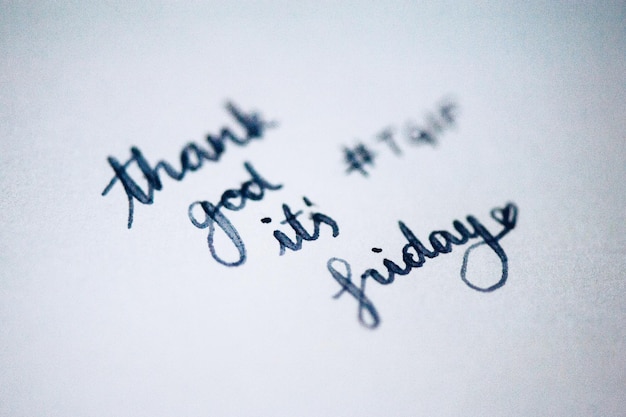 thank
god
it's
friday
#TGIF